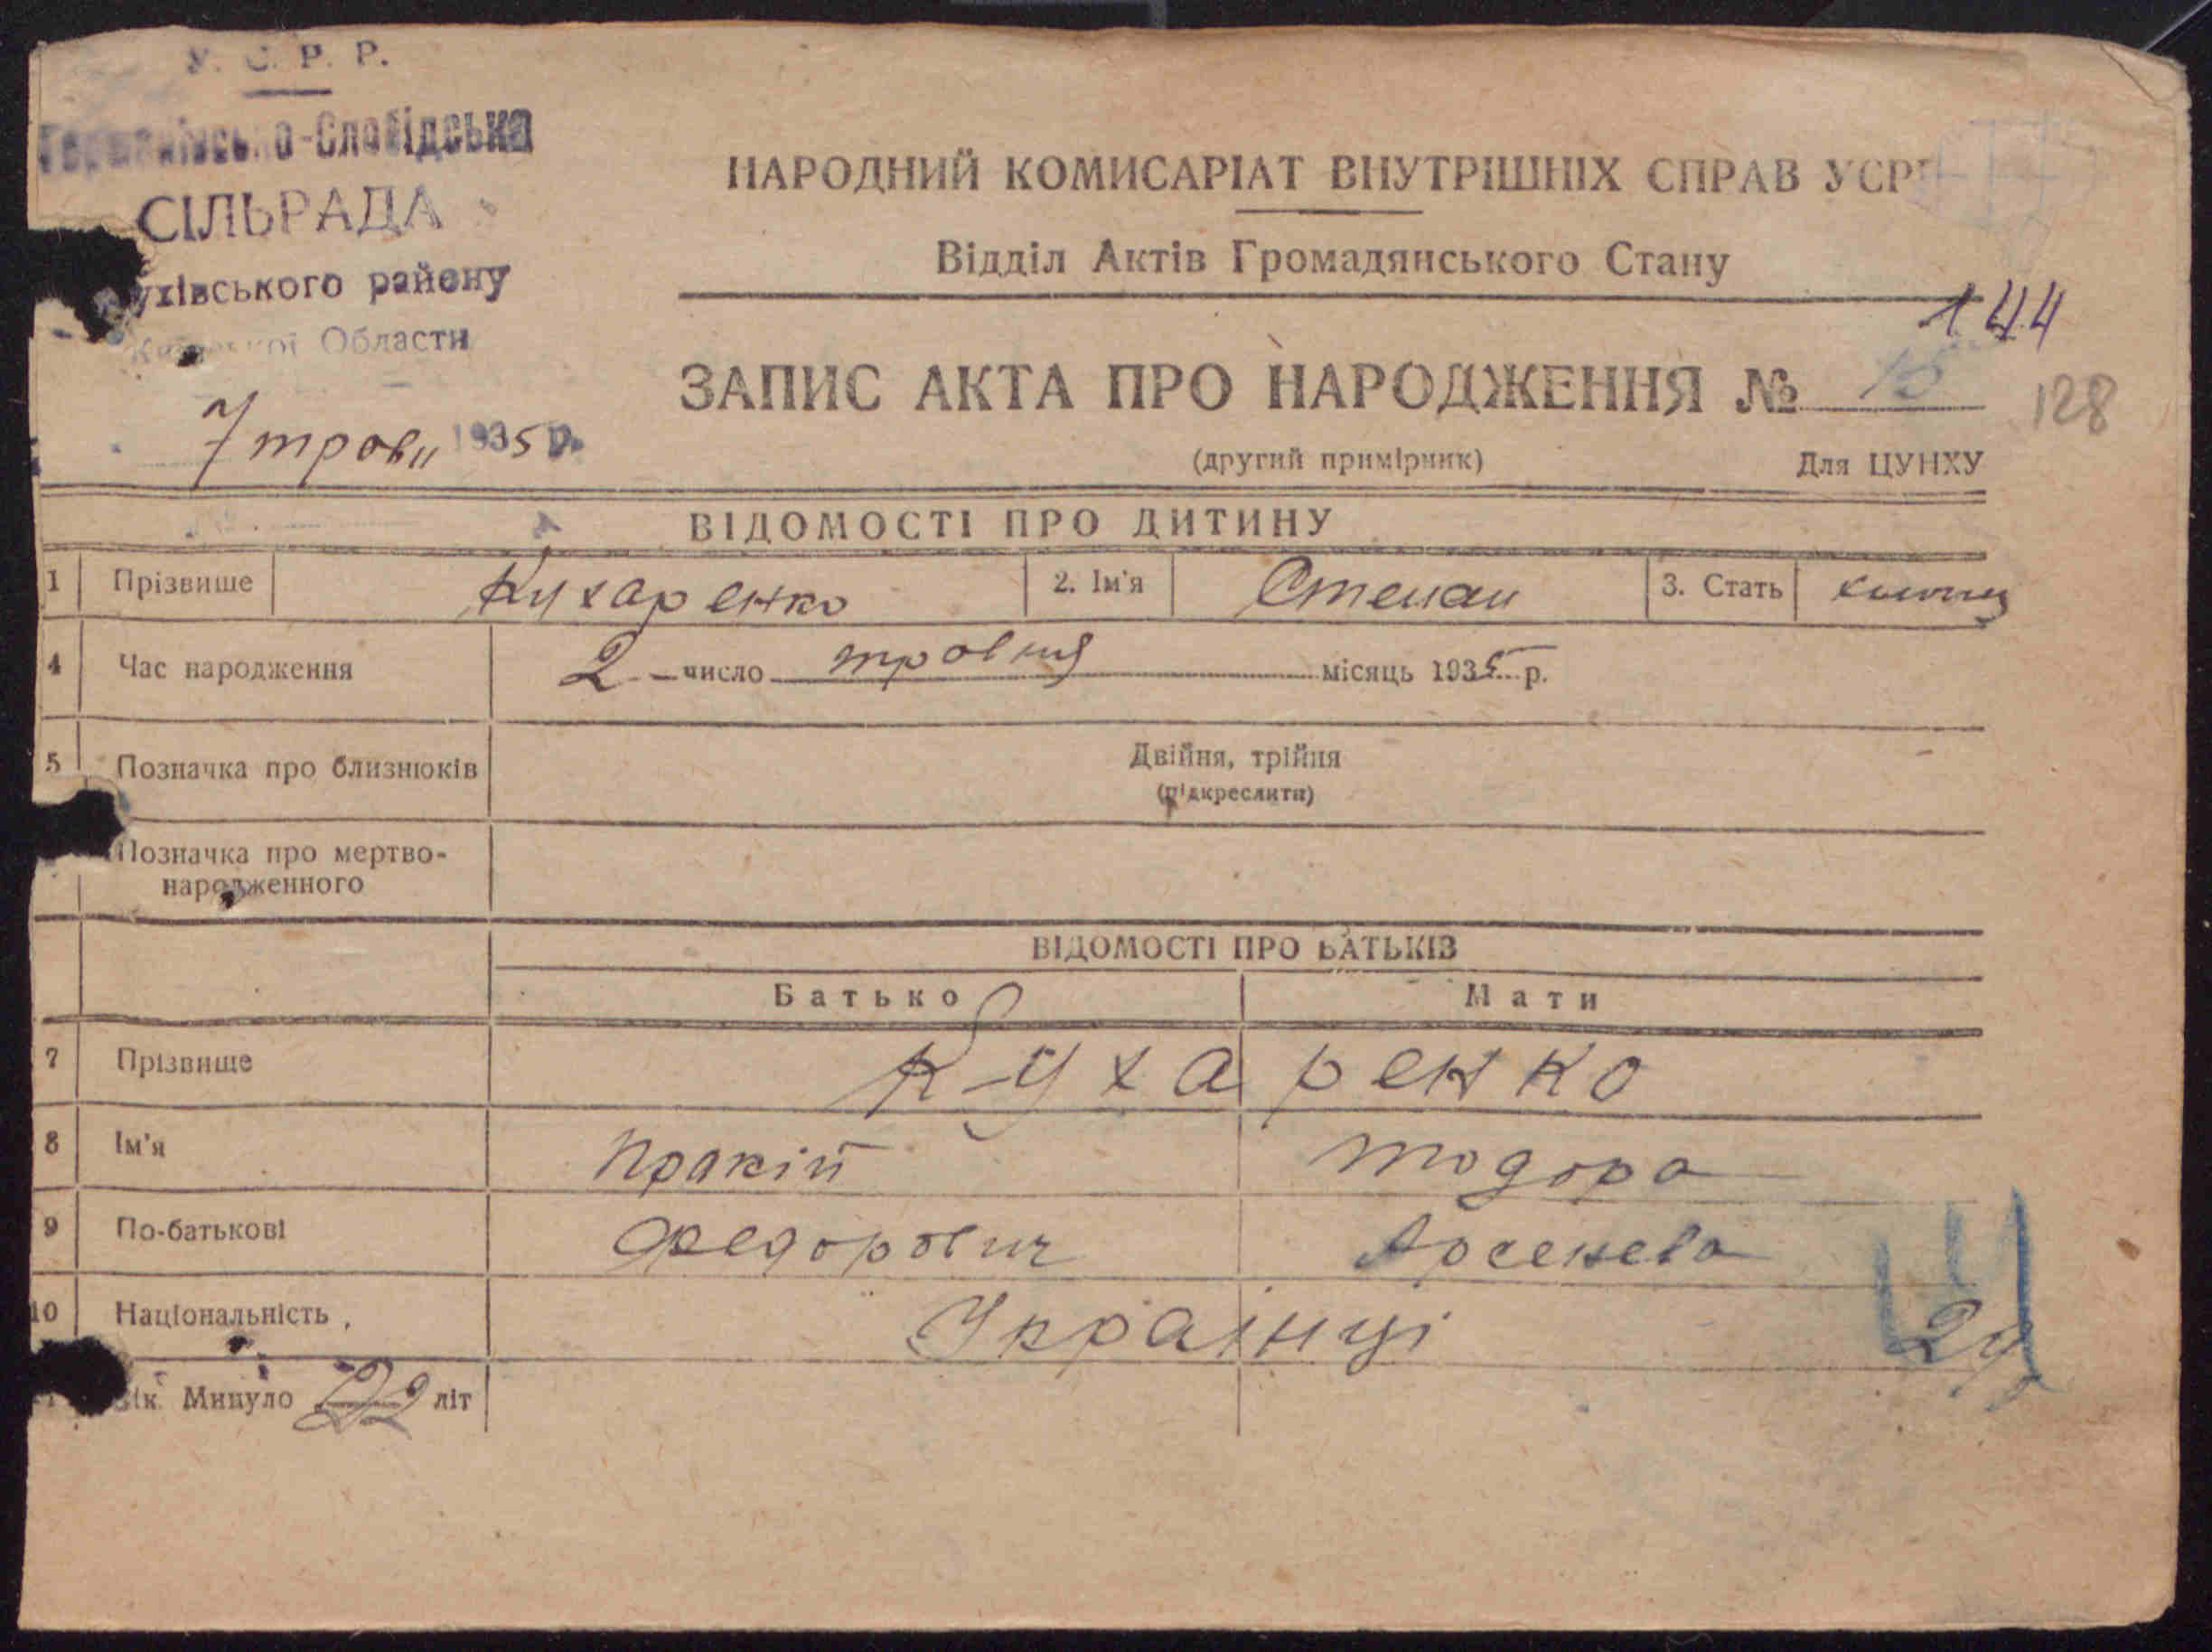 У. С. Р. Р.
Германівсько-Слобідська
СІЛЬРАДА
ухівського району
Київської Области
7 травн 1935 р.
НАРОДНИЙ КОМИСАРІАТ ВНУТРІШНІХ СПРАВ УСРР
Відділ Актів Громадянського Стану
144
ЗАПИС АКТА ПРО НАРОДЖЕННЯ № 15
128
(другий примірник) Для ЦУНХУ
ВІДОМОСТІ ПРО ДИТИНУ
1 Прізвище Кухаренко 2. Ім'я Степан 3. Стать
4 Час народження 2 число травня місяць 1935 р.
5 Позначка про близнюків Двійня, трійня
(підкреслити)
Позначка про мертво-
народженного
ВІДОМОСТІ ПРО БАТЬКІВ
Батько Мати
7 Прізвище Кухаренко
8 Ім'я Пракій Тодора
9 По-батькові Федорович Арсенева
10 Національність Українці
Вік. Минуло 22 літ